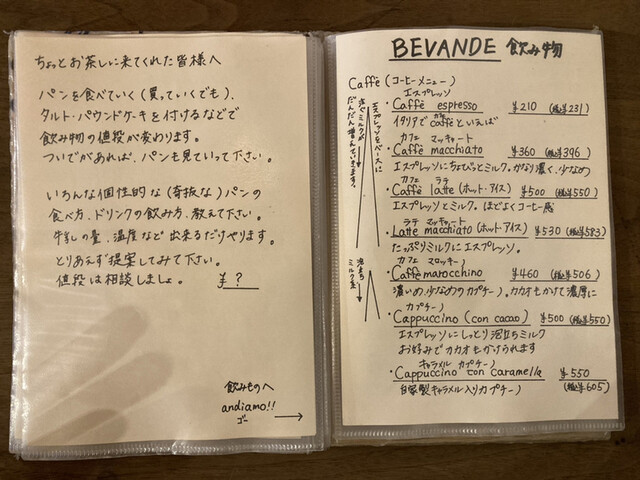 ちょっとお茶しに来てくれた皆様へ
パンを食べていく(買っていくでも)、
タルト・パウンドケーキを付けるなどで
飲み物の値段が変わります。
ついでがあれば、パンも見ていって下さい。
いろんな個性的な(奇抜な)パンの
食べ方、ドリンクの飲み方、教えて下さい。
牛乳の量、温度など出来るだけやります。
とりあえず提案してみて下さい。
値段は相談しましょ。 ¥?
飲みものへ
andiamo!!
ゴー
BEVANDE 飲み物
Caffè (コーヒーメニュー)
エスプレッソをベースに
注ぐミルクが
だんだん増えていきます。
エスプレッソ
・Caffè espresso ¥210 (税込¥231)
イタリアでcaffèといえば
カフェ マッキャート
・Caffè macchiato ¥360 (税込¥396)
エスプレッソにちょびっとミルク。かなり濃く、少なめ
カフェ ラテ
・Caffè latte (ホット・アイス) ¥500 (税込¥550)
エスプレッソとミルク。ほどよくコーヒー感
ラテ マッキャート
・Latte macchiato (ホット・アイス) ¥530 (税込¥583)
たっぷりミルクにエスプレッソ。
泡立ち
ミルク系
カフェ マロッキーノ
・Caffè marocchino ¥460 (税込¥506)
濃いめ、少なめのカプチーノ。カカオもかけて濃厚に
カプチーノ
・Cappuccino (con cacao) ¥500 (税込¥550)
エスプレッソにしっとり泡立ちミルク
お好みでカカオもかけられます
キャラメル カプチーノ
・Cappuccino con caramella ¥550
自家製キャラメル入りカプチーノ (税込¥605)